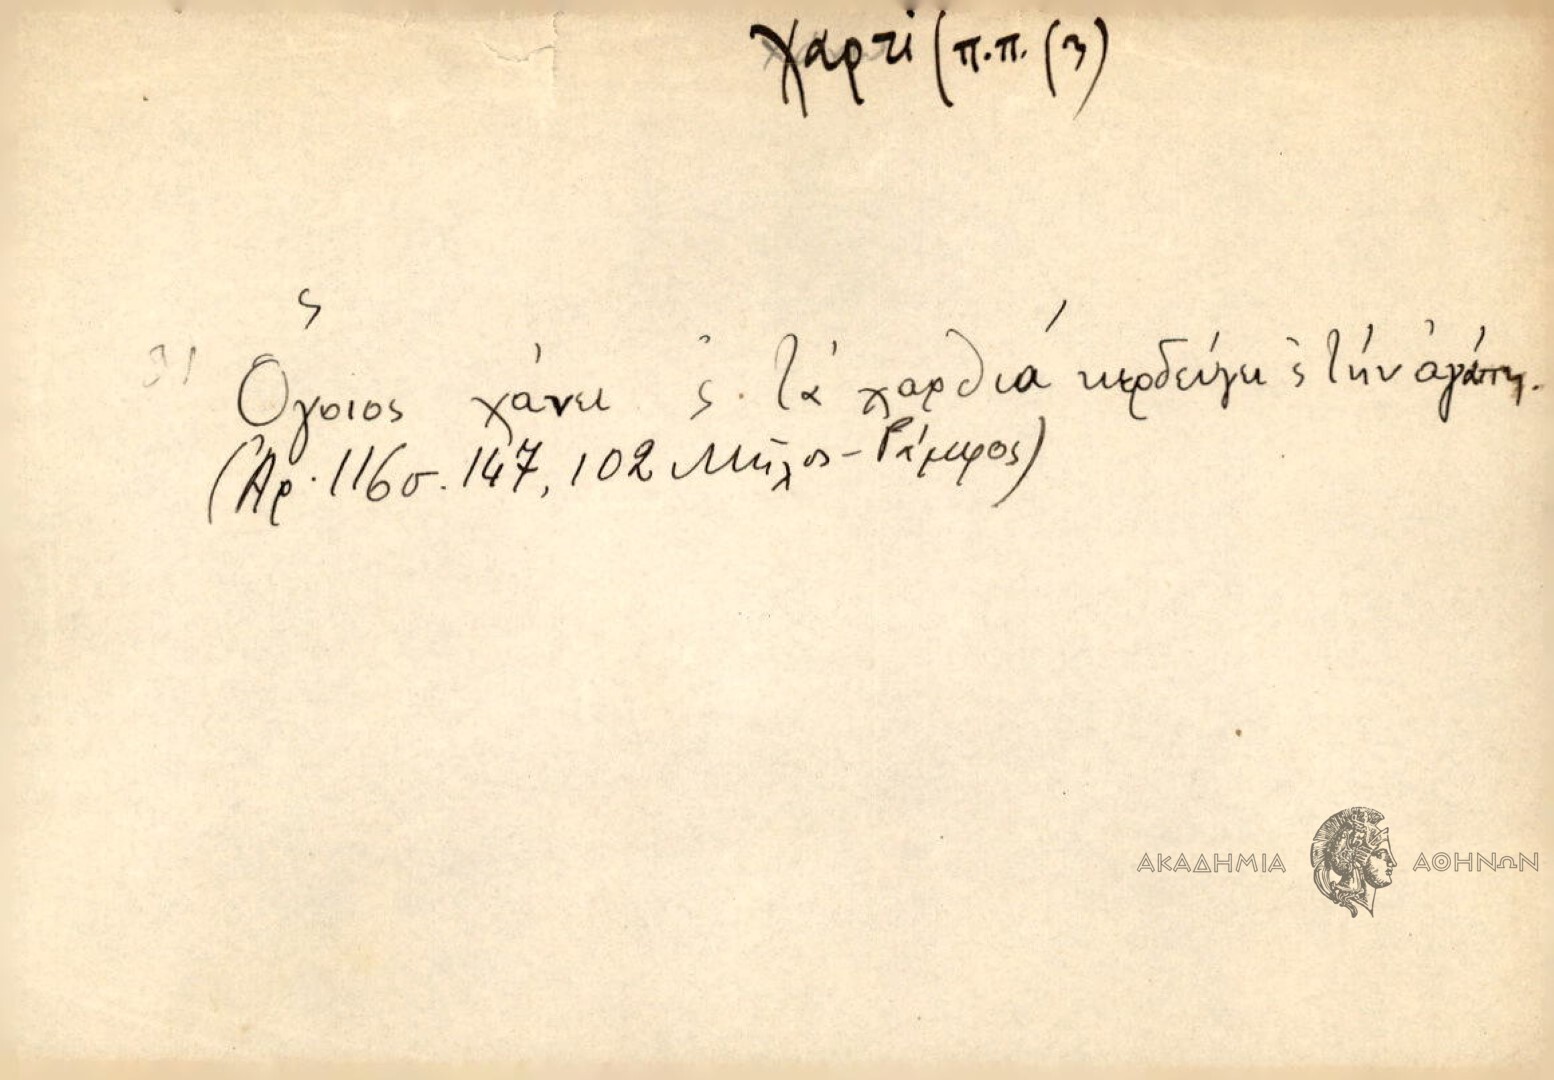 χαρτί (π.π. (3)
Ὅγοιος χάνει ς τὰ χαρθιά κερδεύγει ς τὴν ἀγάπη.
(Ἀρ. 116 σ. 147, 102 Μῆλος -
ΑΚΑΔΗΜΙΑ ΑΘΗΝΩΝ